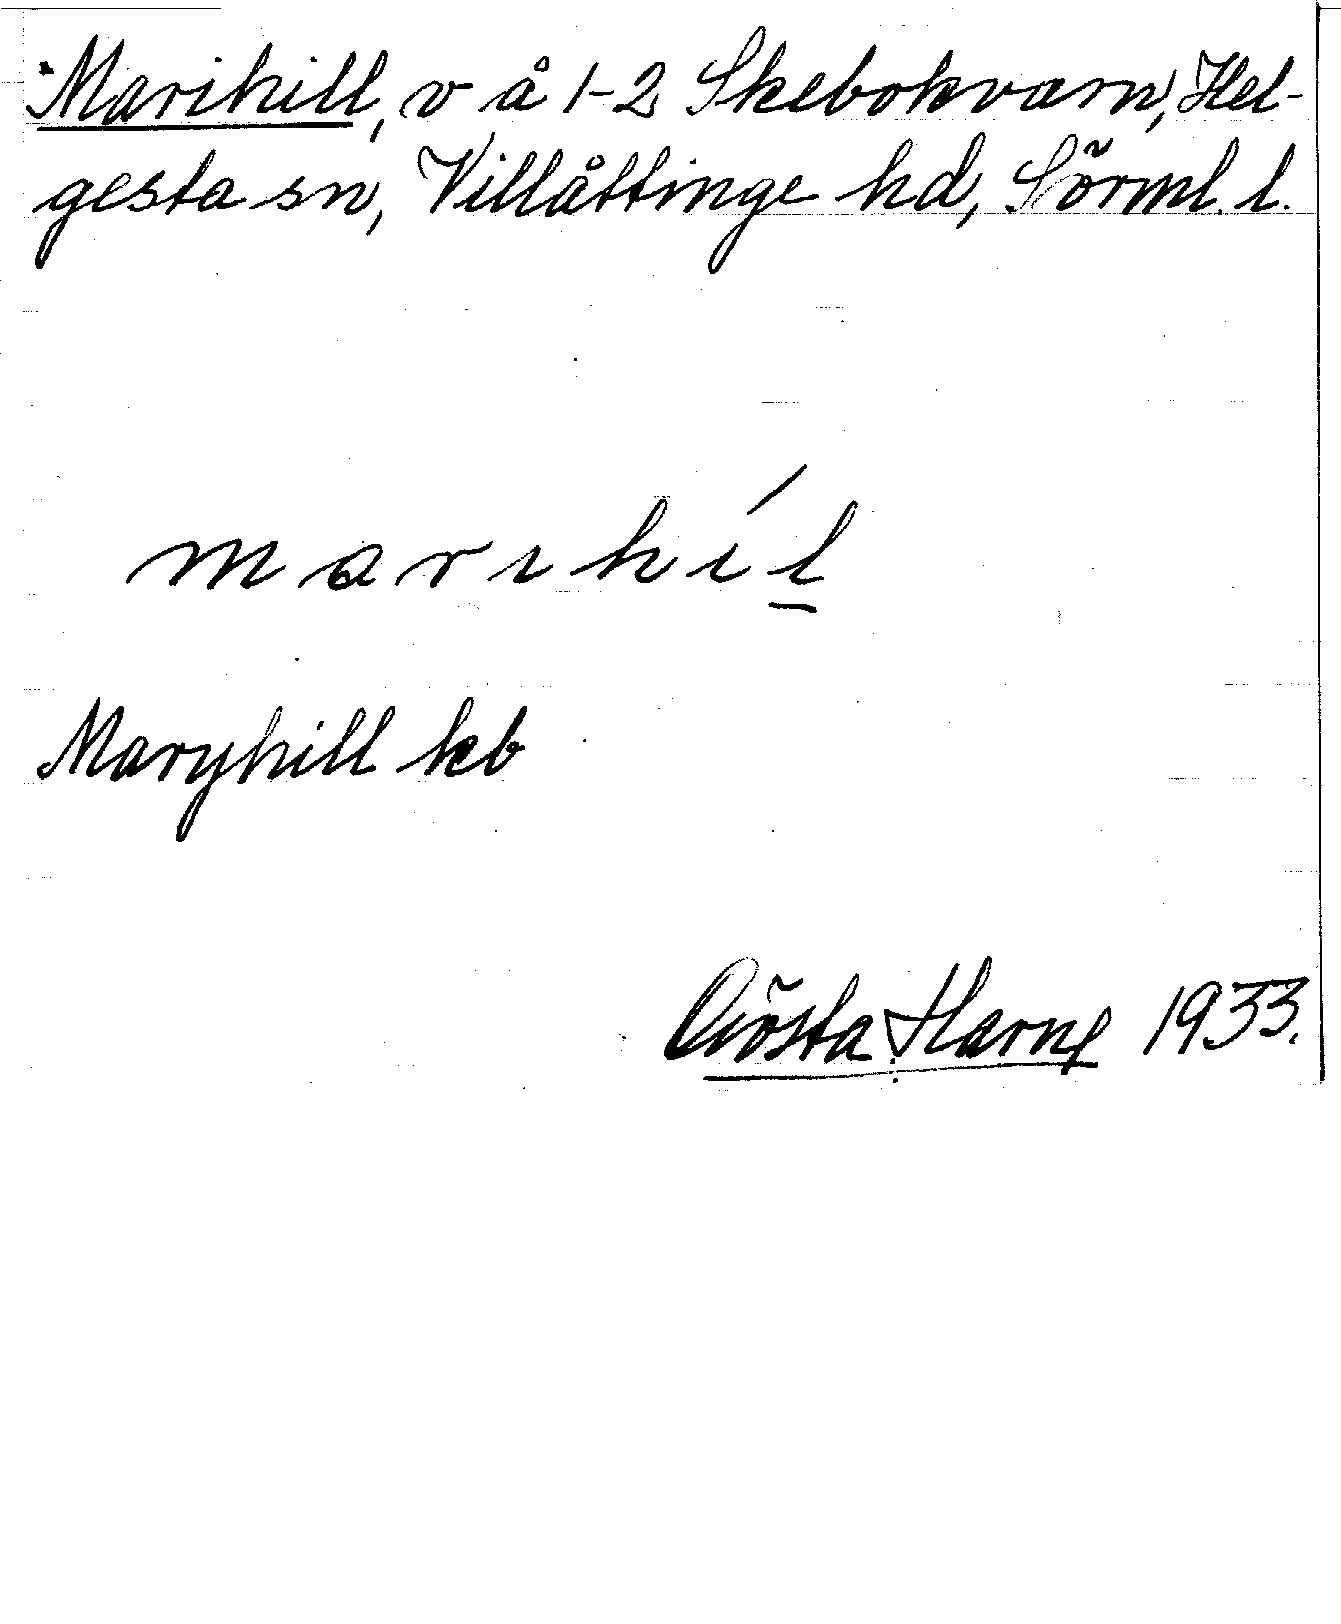 Marihill, v å 1-2 Skebokvarn, Hel-
gesta sn, Villåttinge hd, Sörml. l.
marıhí́l̲
Maryhill kb
Gösta Harne 1933.